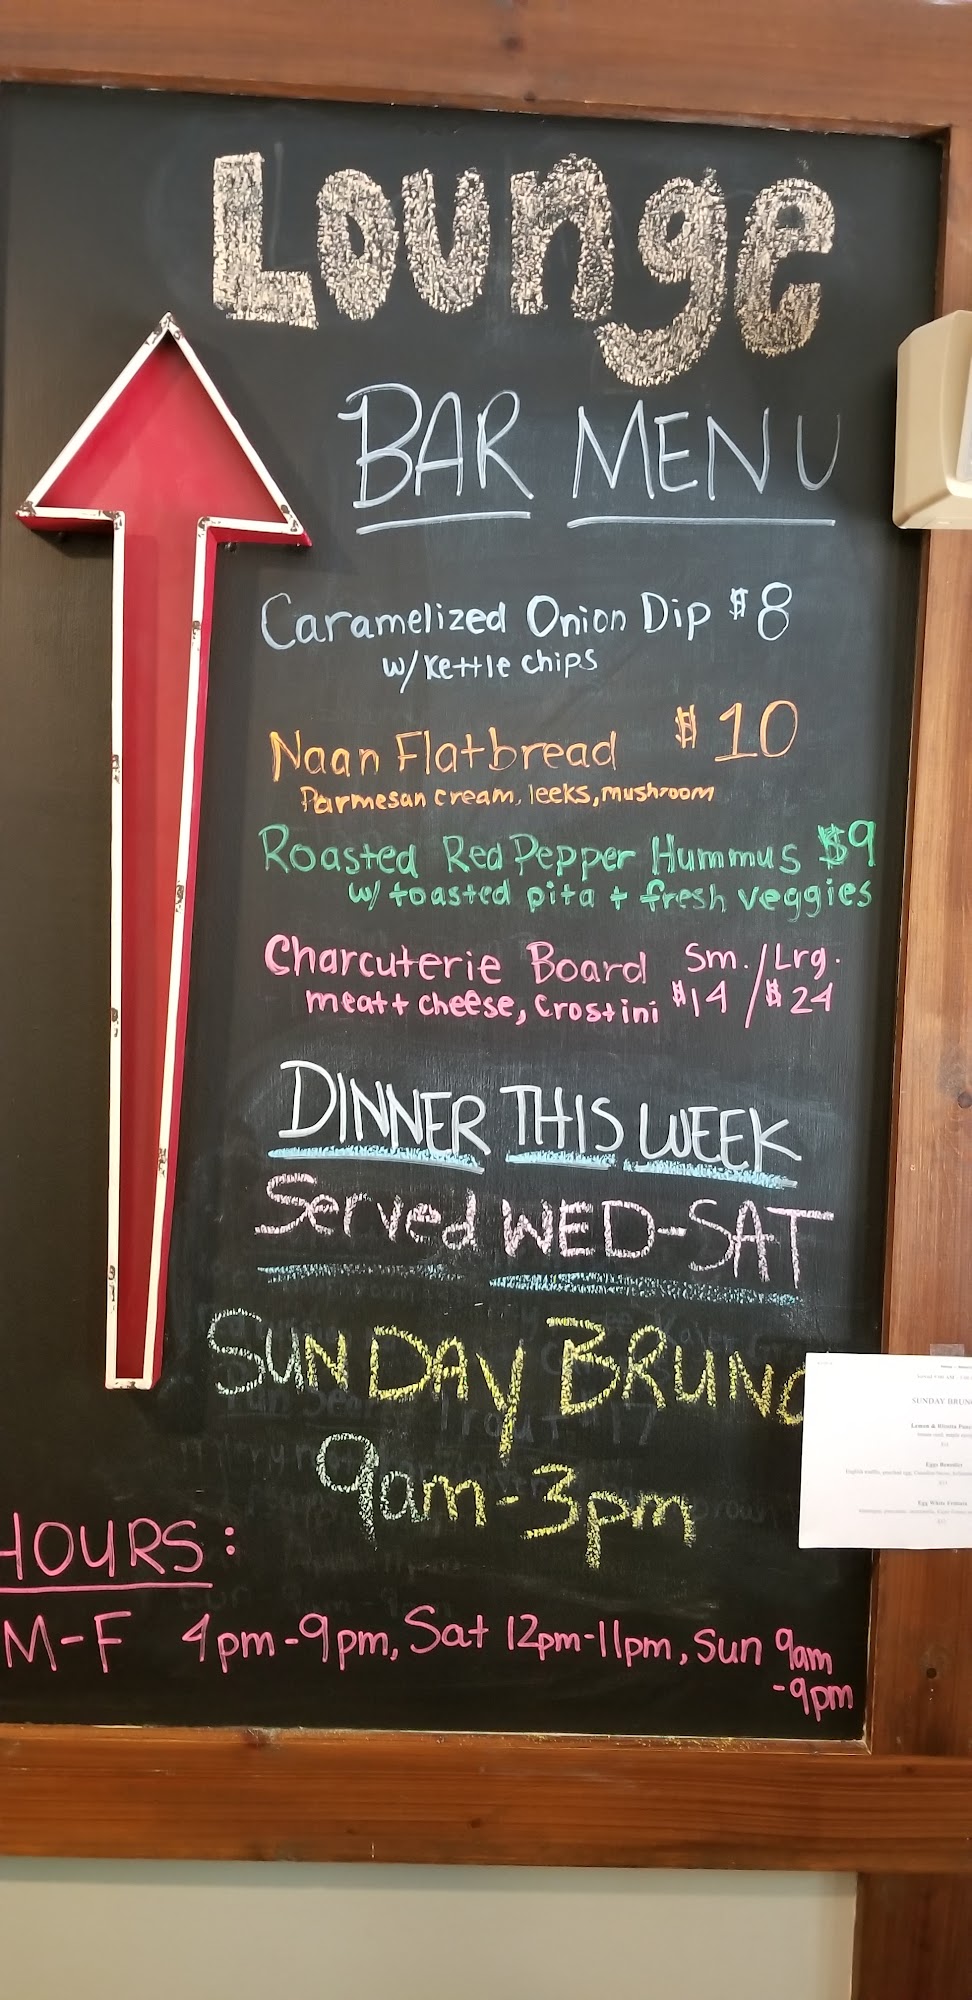 Lounge
BAR MENU
Caramelized Onion Dip $8
w/ kettle chips
Naan Flatbread $10
Parmesan cream, leeks, mushroom
Roasted Red Pepper Hummus $9
w/ toasted pita + fresh veggies
Charcuterie Board Sm. / Lrg.
meat + cheese, crostini $14 / $24
DINNER THIS WEEK
Served WED-SAT
SUNDAY BRUNC
9am-3pm
HOURS:
M-F 4pm-9pm, Sat 12pm-11pm, Sun 9am
-9pm
SUNDAY BRUN
Eggs Benedict